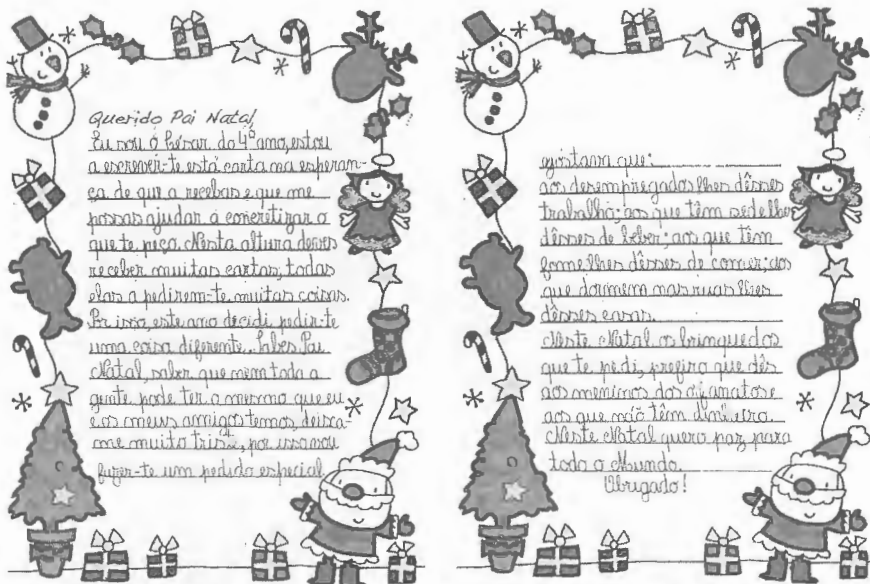 Querido Pai Natal,
Eu sou o César do 4º ano, estou
a escrever-te está carta na esperan-
ça de que a recebas e que me
possas ajudar a concretizar o
que te peço. Nesta altura deves
receber muitas cartas, todas
elas a pedirem-te muitas coisas.
Por isso, este ano decidi pedir-te
uma coisa diferente. Sabes Pai
Natal, saber que nem toda a
gente pode ter o mesmo que eu
e os meus amigos temos, deixa-
me muito triste, por isso vou
fazer-te um pedido especial
gostava que:
aos desempregados lhes dêsses
trabalho; aos que têm sede lhes
dêsses de beber; aos que têm
fome lhes dêsses de comer; aos
que dormem nas ruas lhes
dêsses casas.
Neste Natal os brinquedos
que te pedi, prefiro que dês
aos meninos dos orfanatos e
aos que não têm dinheiro
Neste Natal quero paz para
todo o Mundo.
Obrigado!